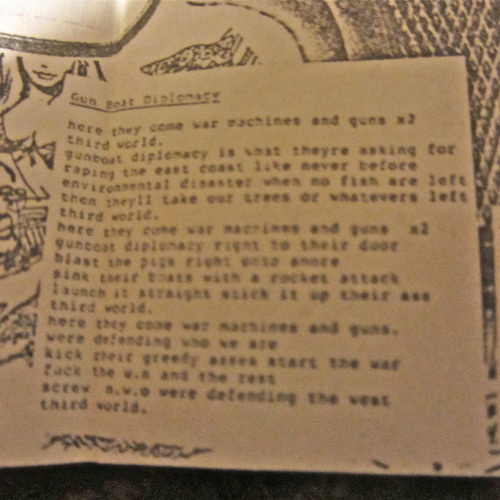 Gun Boat Diplomacy
here they come war machines and guns x2
third world.
gunboat diplomacy is what theyre asking for
raping the east coast like never before
environmental disaster when no fish are left
then theyll take our trees or whatevers left
third world.
here they come war machines and guns x2
gunboat diplomacy right to their door
blast the pigs right onto shore
sink their boats with a rocket attack
launch it straight stick it up their ass
third world.
here they come war machines and guns.
were defending who we are
kick their greedy asses start the war
fuck the u.n and the rest
screw n.w.o were defending the west
third world.